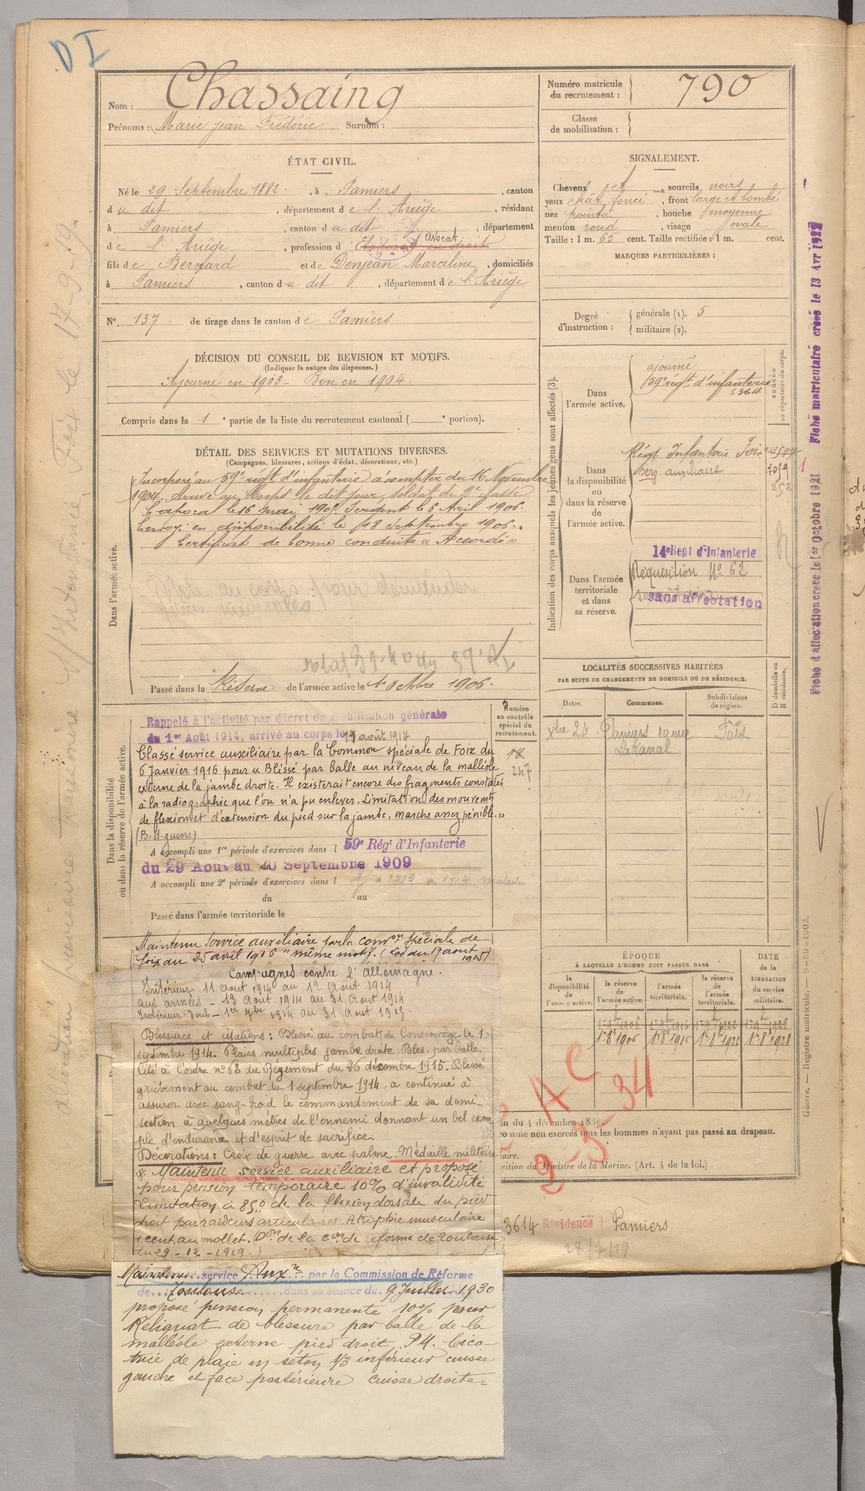 D I
Nom : Chassaing
Prénoms : Marie Jean Frédéric Surnom :
Numéro matricule
du recrutement : 790
Classe
de mobilisation :
ÉTAT CIVIL.
Né le 29 Septembre 1882, à Pamiers, canton
du dit, département de l'Ariège, résidant
à Pamiers, canton du dit, département
de l'Ariège, profession d Avocat
fils de Bernard et de Denjean Marceline, domiciliés
à Pamiers, canton du dit, département de l'Ariège
N° 137 de tirage dans le canton de Pamiers
SIGNALEMENT.
Cheveux jet, sourcils noirs
yeux chât. foncé, front large et bombé
nez pointu, bouche moyenne
menton rond, visage ovale
Taille : 1 m. 62 cent. Taille rectifiée : 1 m. cent.
MARQUES PARTICULIÈRES :
Degré
d'instruction :
générale (1). 5
militaire (2).
DÉCISION DU CONSEIL DE REVISION ET MOTIFS.
(Indiquer la nature des dispenses.)
Ajourné en 1903 - Bon en 1904.
Compris dans la 1e partie de la liste du recrutement cantonal ( e portion).
DÉTAIL DES SERVICES ET MUTATIONS DIVERSES.
(Campagnes, blessures, actions d'éclat, décorations, etc.)
Dans l'armée active.
Incorporé au 59e régt d'infanterie à compter du 16 Novembre
1904, arrivé au corps le dit jour, soldat de 2e classe
Caporal le 16 mai 1905 Sergent le 8 Avril 1906.
Envoyé en disponibilité le 18 Septembre 1906.
Certificat de bonne conduite « Accordé »
Passé dans la Réserve de l'armée active le 1 octobre 1906.
Indication des corps auxquels les jeunes gens sont affectés (3).
Dans
l'armée active.
ajourné
59e régt d'infanterie
5364
Dans
la disponibilité
ou
dans la réserve
de
l'armée active.
Régt Infanterie Foix
Serv. auxiliaire
7059
252
Dans l'armée
territoriale
et dans
sa réserve.
14e Regt d'Infanterie
Réquisition N° 62
sans affectation
Fiche d'allocation créée le 1er octobre 1921 Fiche matriculaire créée le 13 Avr 1922
Dans la disponibilité
ou dans la réserve de l'armée active.
Numéro
au contrôle
spécial du
recrutement.
247
Rappelé à l'activité par décret de mobilisation générale
du 1er Août 1914, arrivé au corps le 11 août 1914
Classé service auxiliaire par la Common spéciale de Foix du
6 Janvier 1916 pour « Blessé par balle au niveau de la malléole
externe de la jambe droite. Il existerait encore des fragments constatés
à la radiographie que l'on n'a pu enlever. Limitation des mouvements
de flexion et d'extension du pied sur la jambe, marche assez pénible. »
(B. de guerre)
A accompli une 1re période d'exercices dans l 59e Rég' d'Infanterie
du 29 Août au 20 Septembre 1909
A accompli une 2e période d'exercices dans l
du au
Passé dans l'armée territoriale le
LOCALITÉS SUCCESSIVES HABITÉES
PAR SUITE DE CHANGEMENTS DE DOMICILE OU DE RÉSIDENCE.
Dates. Communes. Subdivisions
de région.
D domicile ou
R résidence.
Xbre 24 Pamiers 20 rue Foix
ÉPOQUE
À LAQUELLE L'HOMME DOIT PASSER DANS
la
disponibilité
de
l'armée active.
la réserve
de
l'armée active.
l'armée
territoriale.
la réserve
de l'armée
territoriale.
DATE
de la
LIBÉRATION
du service
militaire.
1er 8e 1906 1er 8e 1916 1er 8e 1922 1er 8e 1928
Maintenu service auxiliaire par la comon spéciale de
Foix du 25 avril 1916 "même motif". (Loi du 17 août
1915)
Campagnes contre l'Allemagne.
Intérieur 11 août 1914 au 12 Août 1914
aux armées - 13 Août 1914 au 31 Août 1914
Blessures et citations : Blessé au combat de Consenvoye le 1
septembre 1914. Plaies multiples jambe droite Bles. par balle.
Cité à l'ordre n° 63 du Régiment du 26 décembre 1915. Blessé
grièvement au combat du 1 septembre 1914, a continué à
assurer avec sang-froid le commandement de sa demi-
section à quelques mètres de l'ennemi donnant un bel exem
ple d'endurance et d'esprit de sacrifice.
Décorations : Croix de guerre avec palme. Médaille militaire
* Maintenu service auxiliaire et proposé
pour pension temporaire 10% d'invalidité
Limitation à 85° de la flexion dorsale du pied
droit par raideurs articulaires. Atrophie musculaire
1 cent au mollet. (Don de la Con de réforme de Toulouse
du 29-12-1919.)
AC
2-3-34
on du 4 décembre
comme non exercés tous les hommes n'ayant pas passé au drapeau.
du Ministre de la Marine. (Art. 4 de la loi.)
3614 Résidence Pamiers
Guerre. — Registre matricule. —
Maintenu service Auxre par la Commission de Réforme
de Toulouse dans sa séance du 9 Juillet 1930
proposé pension permanente 10% pour
Reliquat de blessure par balle de la
malléole externe pied droit. P.M. Cica-
trice de plaie en séton 1/3 inférieur cuisse
gauche et face postérieure cuisse droite.